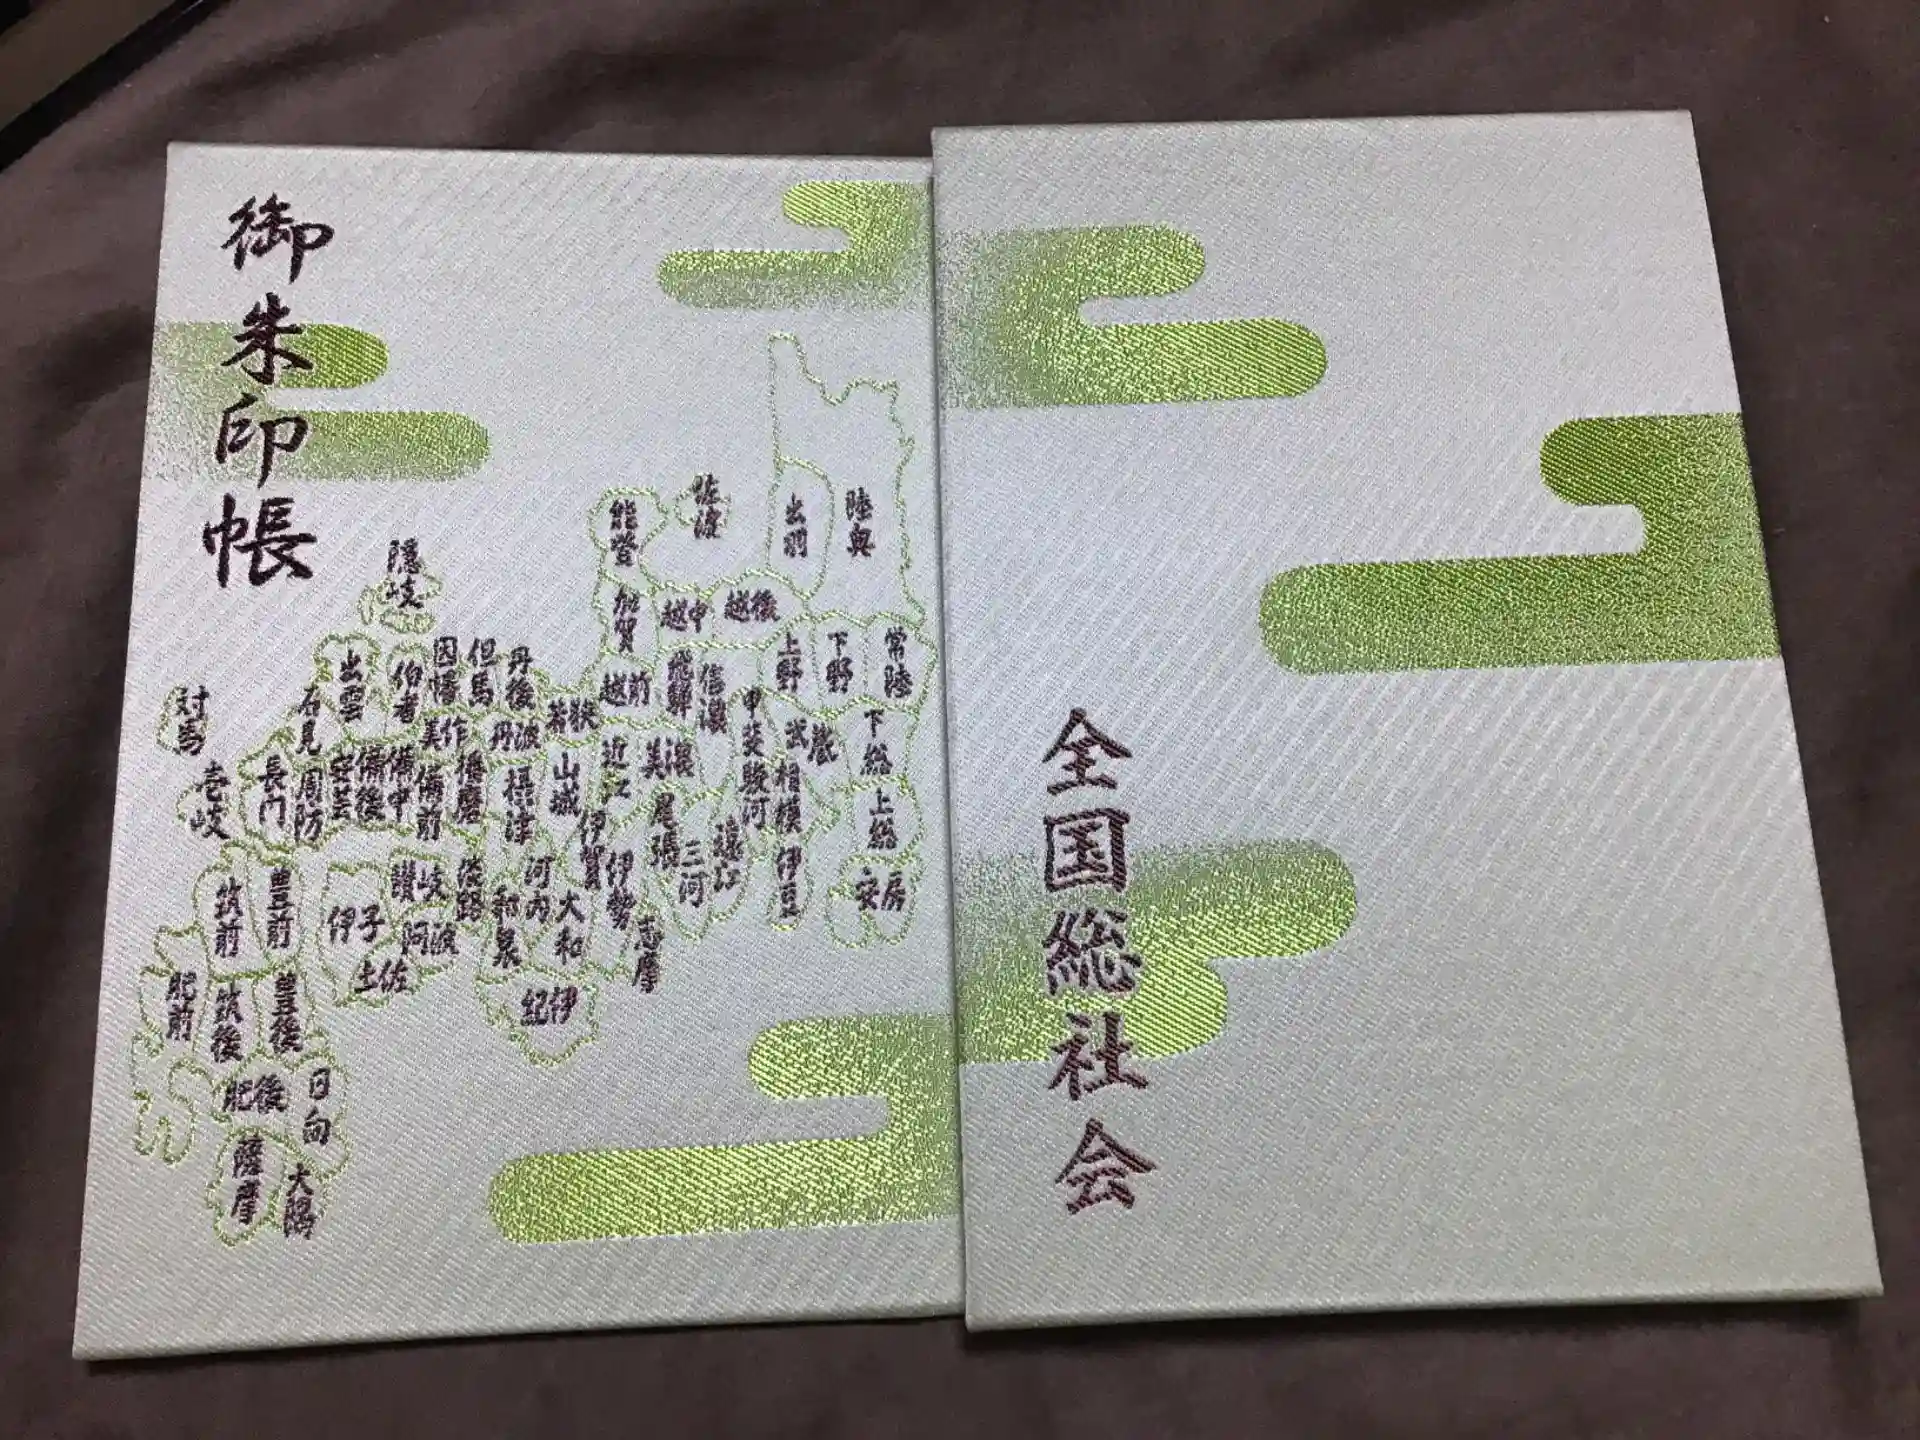 御朱印帳
佐渡
能登
出羽
陸奥
隠岐
加賀
越中
越後
上野
下野
常陸
出雲
伯耆
因幡
但馬
丹後
若狭
越前
飛騨
信濃
甲斐
武蔵
下総
対馬
石見
美作
丹波
近江
美濃
壱岐
長門
周防
安芸
備後
備中
備前
播磨
摂津
山城
尾張
駿河
相模
上総
伊賀
伊勢
三河
遠江
伊豆
安房
筑前
豊前
伊予
讃岐
淡路
河内
和泉
大和
志摩
阿波
土佐
紀伊
肥前
筑後
豊後
肥後
日向
薩摩
大隅
全国総社会